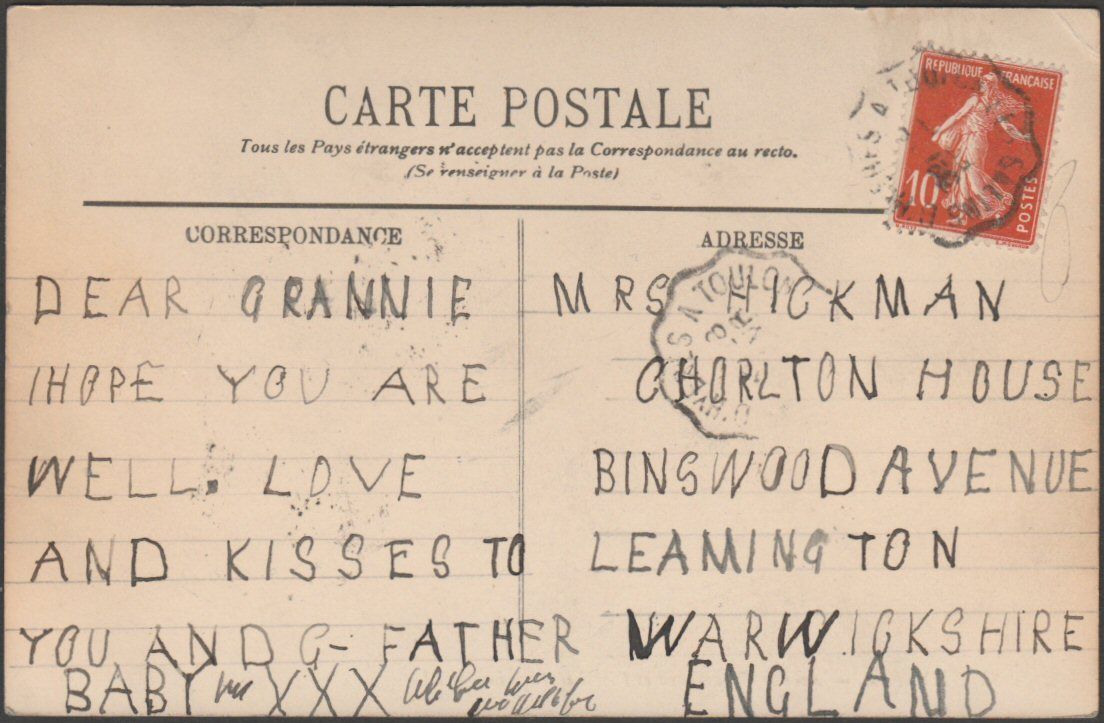 CARTE POSTALE
Tous les Pays étrangers n'acceptent pas la Correspondance au recto.
(Se renseigner à la Poste)
REPUBLIQUE FRANÇAISE
10
POSTES
CORRESPONDANCE
DEAR GRANNIE
I HOPE YOU ARE
WELL. LOVE
AND KISSES TO
YOU AND G-FATHER
BABY XXX
ADRESSE
MRS HICKMAN
CHORLTON HOUSE
BINSWOOD AVENUE
LEAMINGTON
WARWICKSHIRE
ENGLAND
A TOULON